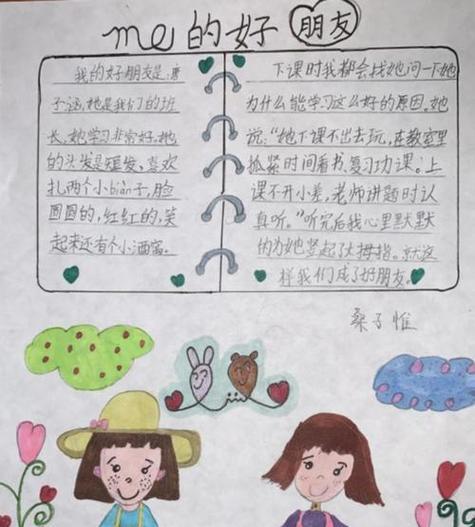 me的好朋友
我的好朋友是唐
子涵,她是我们的班
长,她学习非常好,她
的头发是短发,喜欢
扎两个小biàn子,脸
圆圆的,红红的,笑
起来还有个小酒窝。
下课时我都会找她问一下她
为什么能学习这么好的原因。她
说:“她下课不出去玩,在教室里
抓紧时间看书、复习功课。上
课不开小差,老师讲题时认
真听。”听完后我心里默默
的为她竖起了大拇指。就这
样我们成了好朋友。
桑子惟